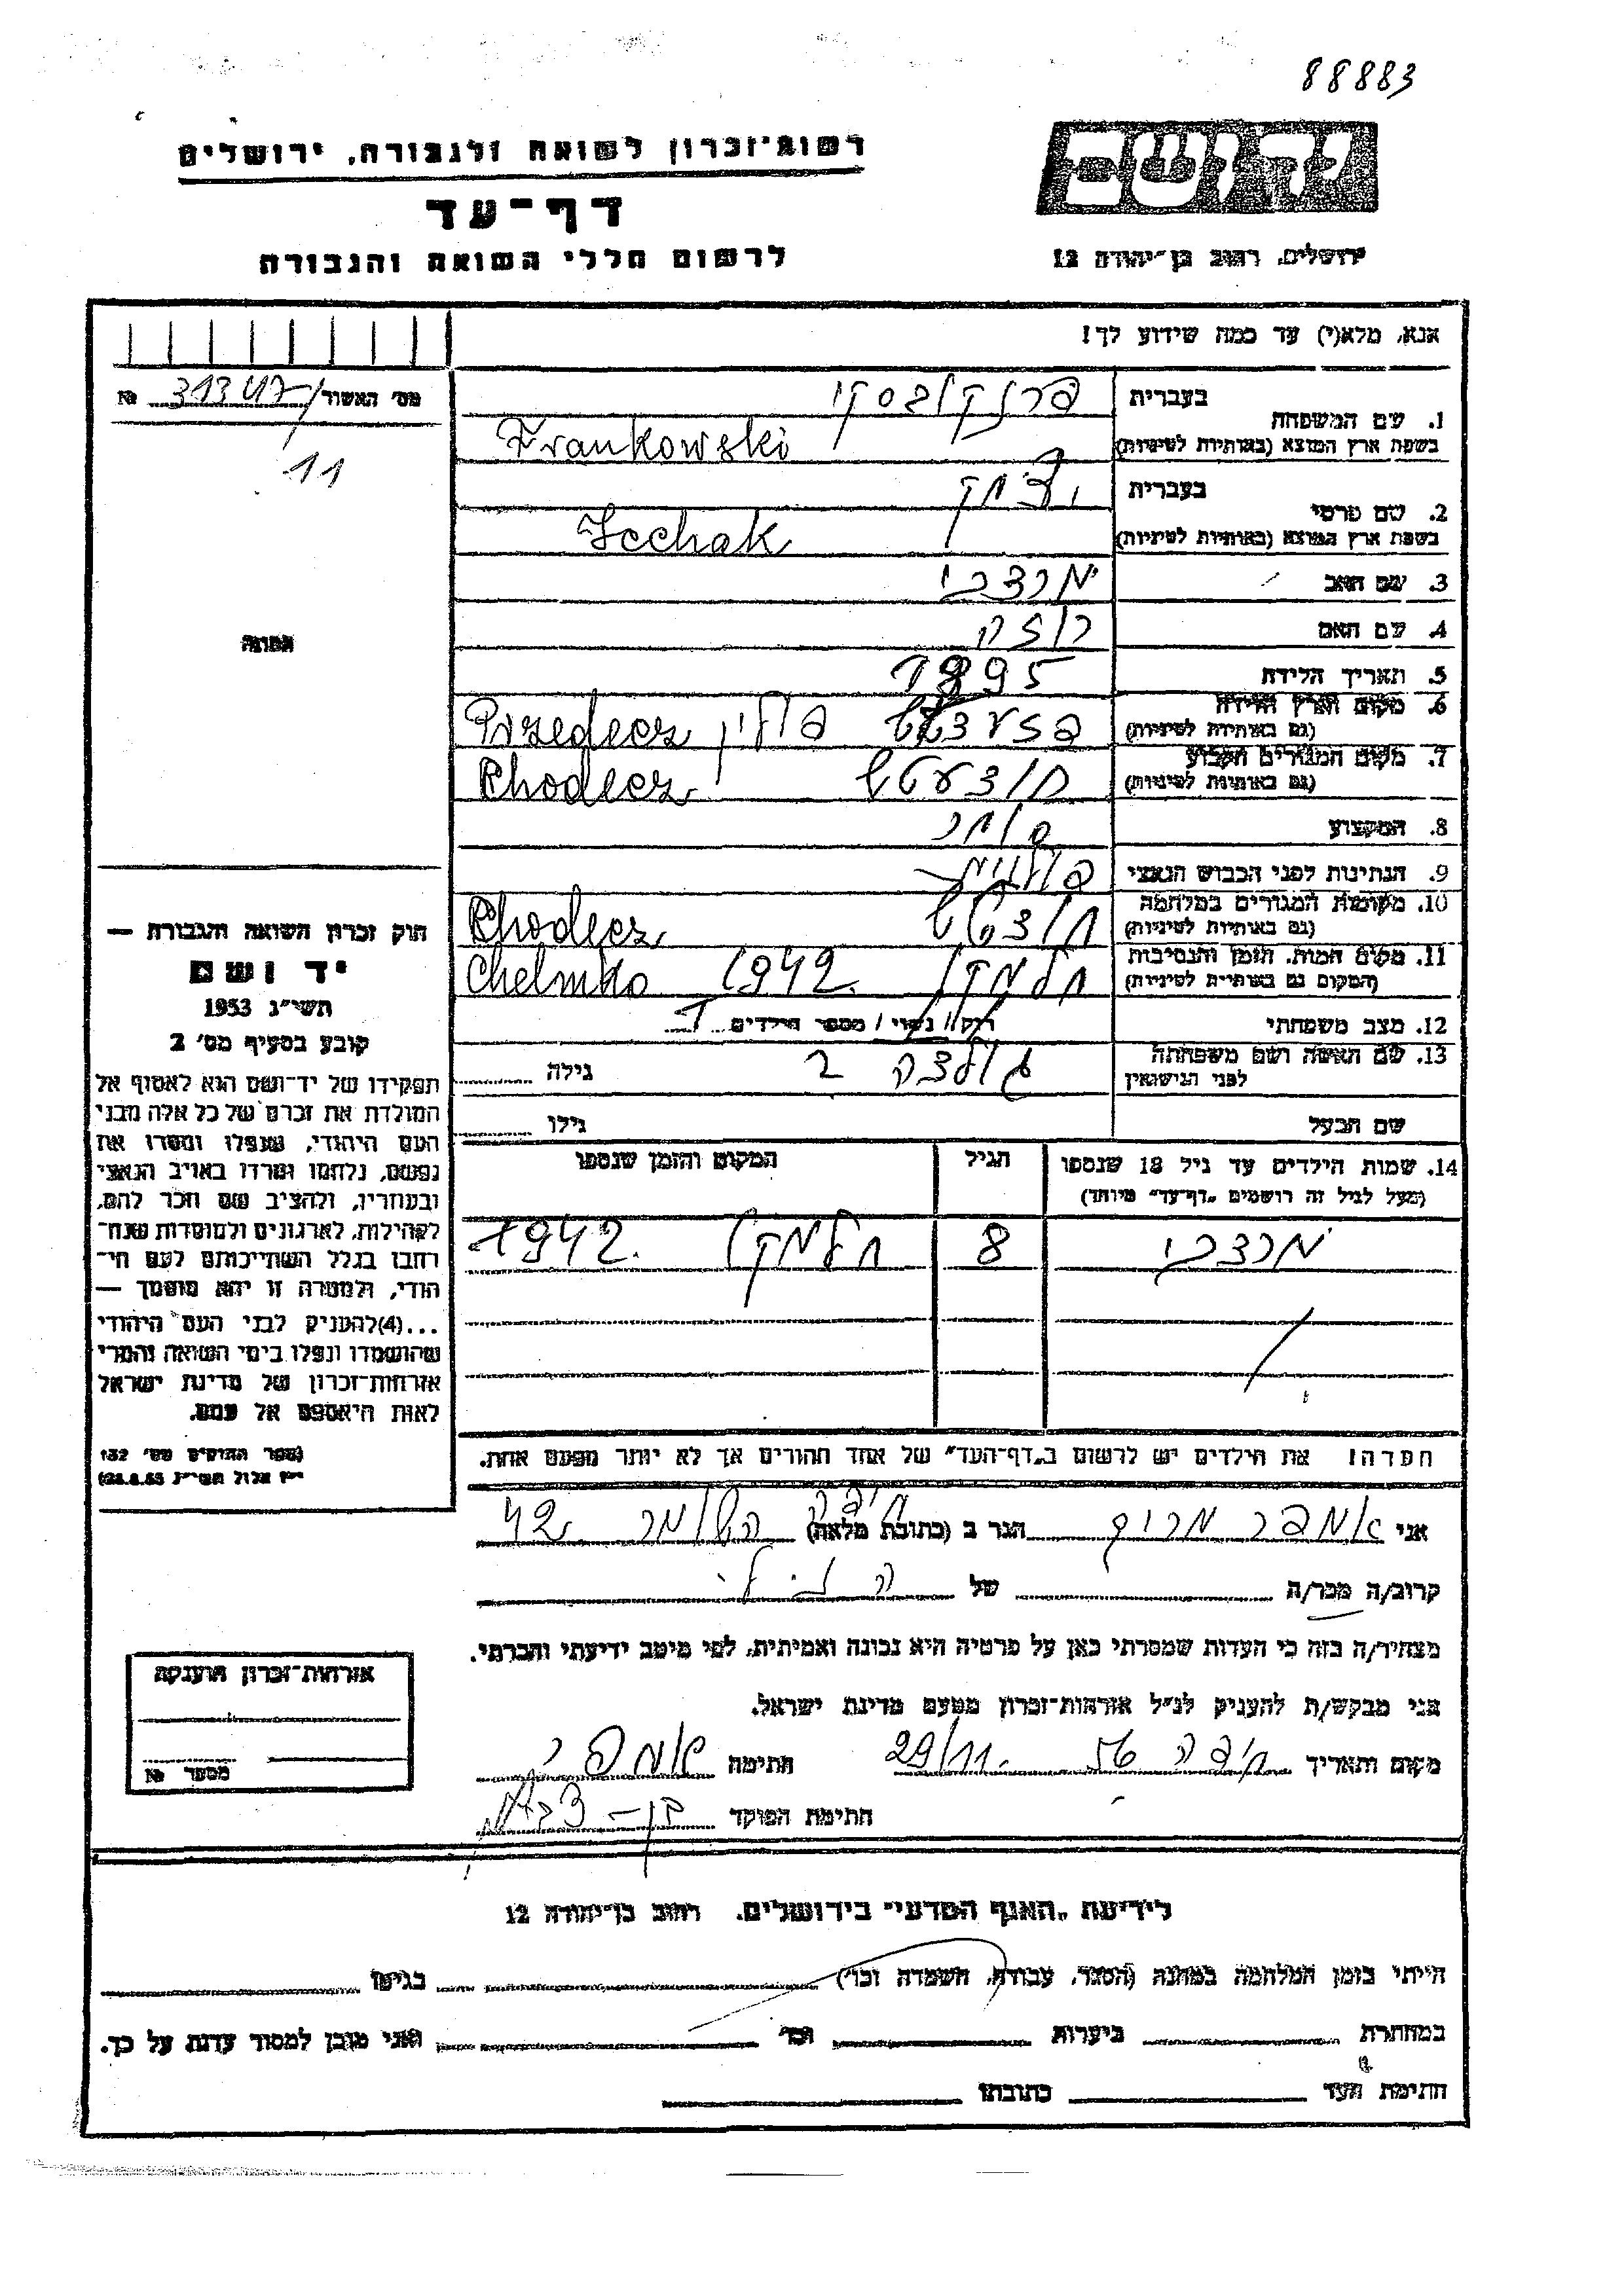 88883
יד ושם
ירושלים, רחוב בן־יהודה 12
רשות־זכרון לשואה ולגבורה, ירושלים
דף־עד
לרשום חללי השואה והגבורה
אנא, מלא(י) עד כמה שידוע לך!
מס׳ האשור 31347/ №
11
1. שם המשפחה
בעברית פרנקובסקי
בשפת ארץ המוצא (באותיות לטיניות) Frankowski
2. שם פרטי
בעברית יצחק
בשפת ארץ המוצא (באותיות לטיניות) Icchak
3. שם האב מרדכי
4. שם האם
5. תאריך הלידה 1895
6. מקום וארץ הלידה
(גם באותיות לטיניות) פולין Przedecz
7. מקום המגורים הקבוע
(גם באותיות לטיניות) Chodecz
8. המקצוע סוחר
9. הנתינות לפני הכבוש הנאצי פולנית
10. מקומות המגורים במלחמה
(גם באותיות לטיניות) Chodecz
11. מקום המות, הזמן והנסיבות
(המקום גם באותיות לטיניות) חלמנו 1942 Chelmno
12. מצב משפחתי רוק/ נשוי / מספר הילדים 1
13. שם האשה ושם משפחתה
לפני הנישואין גילה
שם הבעל גילו
14. שמות הילדים עד גיל 18 שנספו
(מעל לגיל זה רושמים „דף־עד״ מיוחד)
הגיל
המקום והזמן שנספו
מרדכי 8 חלמנו 1942
הערה! את הילדים יש לרשום ב„דף־העד״ של אחד ההורים אך לא יותר מפעם אחת.
התמונה
חוק זכרון השואה והגבורה —
יד ושם
תשי״ג 1953
קובע בסעיף מס׳ 2
תפקידו של יד־ושם הוא לאסוף אל
המולדת את זכרם של כל אלה מבני
העם היהודי, שנפלו ומסרו את
נפשם, נלחמו ומרדו באויב הנאצי
ובעוזריו, ולהציב שם וזכר להם,
לקהילות, לארגונים ולמוסדות שנח־
רבו בגלל השתייכותם לעם הי־
הודי, ולמטרה זו יהא מוסמך —
...(4)להעניק לבני העם היהודי
שהושמדו ונפלו בימי השואה והמרי
אזרחות־זכרון של מדינת ישראל
לאות היאספם אל עמם.
(ספר החוקים מס׳ 132
י״ז אלול תשי״ג 28.8.53)
אני הגר ב (כתובת מלאה) חיפה השומר 42
קרוב/ה מכר/ה של
מצהיר/ה בזה כי העדות שמסרתי כאן על פרטיה היא נכונה ואמיתית, לפי מיטב ידיעתי והכרתי.
אני מבקש/ת להעניק לנ״ל אזרחות־זכרון מטעם מדינת ישראל.
מקום ותאריך חיפה 29/11 56 חתימה
חתימת הפוקד
אזרחות־זכרון הוענקה
מספר №
לידיעת „האגף המדעי״ בירושלים, רחוב בן־יהודה 12
הייתי בזמן המלחמה במחנה (הסגר, עבודה, השמדה וכו׳) בגיטו
במחתרת ביערות וכו׳ ואני מוכן למסור עדות על כך.
חתימת העד כתובתו